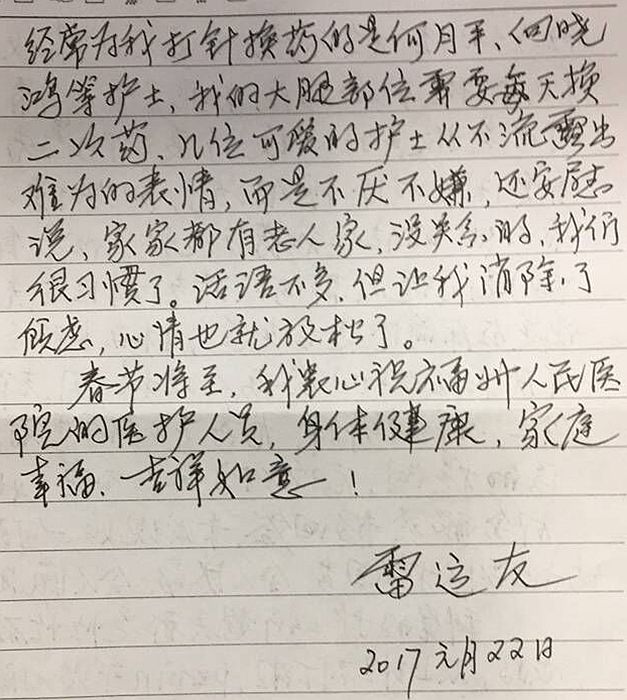 经常为我打针换药的是何月平、何晓
鸿等护士，我的大腿部位需要每天换
二次药、几位可爱的护士从不流露出
难为的表情，而是不厌不嫌，还安慰
说，家家都有老人家，没关系的，我们
很习惯了。话语不多，但让我消除了
顾虑，心情也就放松了。
春节将至，我衷心祝福州人民医
院的医护人员，身体健康，家庭
幸福、吉祥如意！
雷运友
2017元月22日